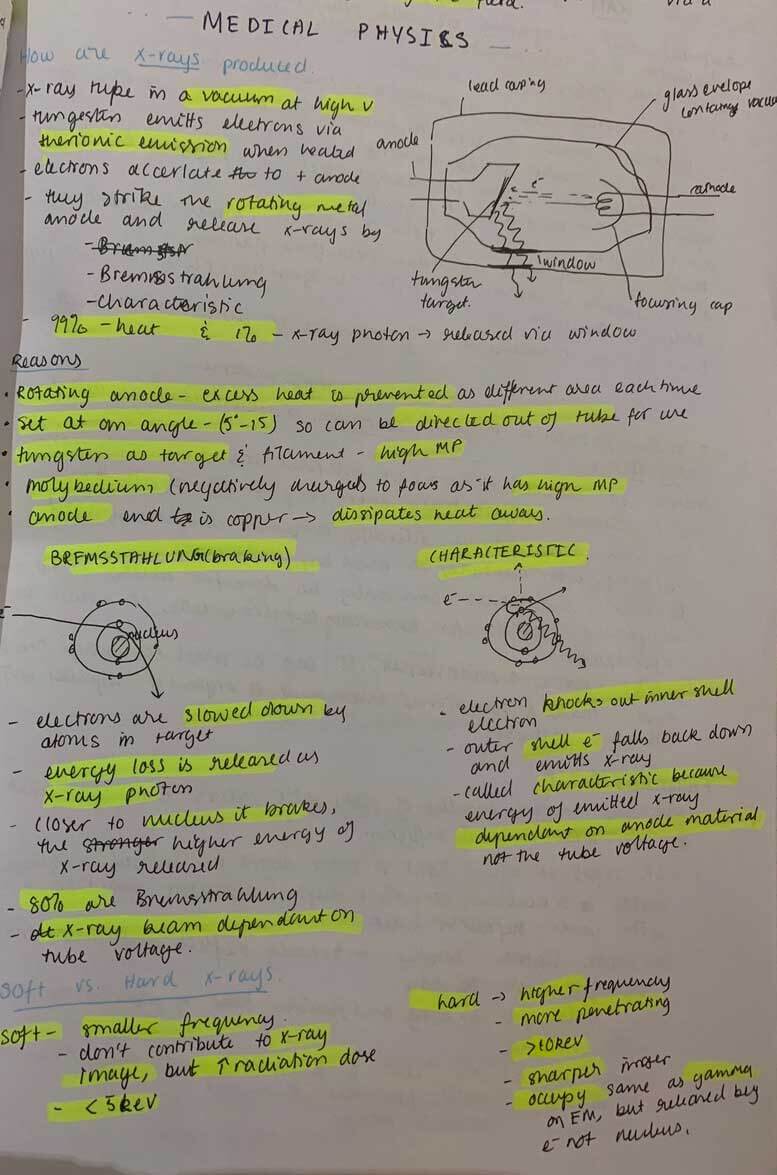 MEDICAL PHYSICS
How are x-rays produced.
-x-ray tube in a vacuum at high v
- tungesten emitts electrons via
therionic emission when heated
- electrons accerlate to + anode
- they strike the rotating metal
anode and release x-rays by
- Bremsstr
- Bremsstrahlung
- characteristic
- 99% - heat & 1% - x-ray photon → released via window
lead casing
glass evelope
containing vacuum
anode
e-
cathode
window
tungsten
target.
focusing cap
Reasons
• Rotating anode - excess heat is prevented as different area each time
• Set at an angle - (5°-15) so can be directed out of tube for use
• tungsten as target & filament - high MP
• molybedium (negatively charged) to focus as it has high MP
• anode end is copper → dissipates heat away.
BREMSSTAHLUNG (braking)
e-
nucleus
- electrons are slowed down by
atoms in target
- energy loss is released as
x-ray photon
- closer to nucleus it brakes,
the stronger higher energy of
x-ray released
- 80% are Bremsstrahlung
- x-ray beam dependant on
tube voltage.
CHARACTERISTIC.
e-
- electron knocks out inner shell
electron
- outer shell e- falls back down
and emitts x-ray
- called characteristic because
energy of emitted x-ray
dependant on anode material
not the tube voltage.
Soft vs. Hard x-rays.
soft - smaller frequency.
- don't contribute to x-ray
image, but ↑ radiation dose
- <5keV
hard → higher frequency
- more penetrating
- >10keV
- sharper image
- occupy same as gamma
on EM, but released by
e- not nucleus.